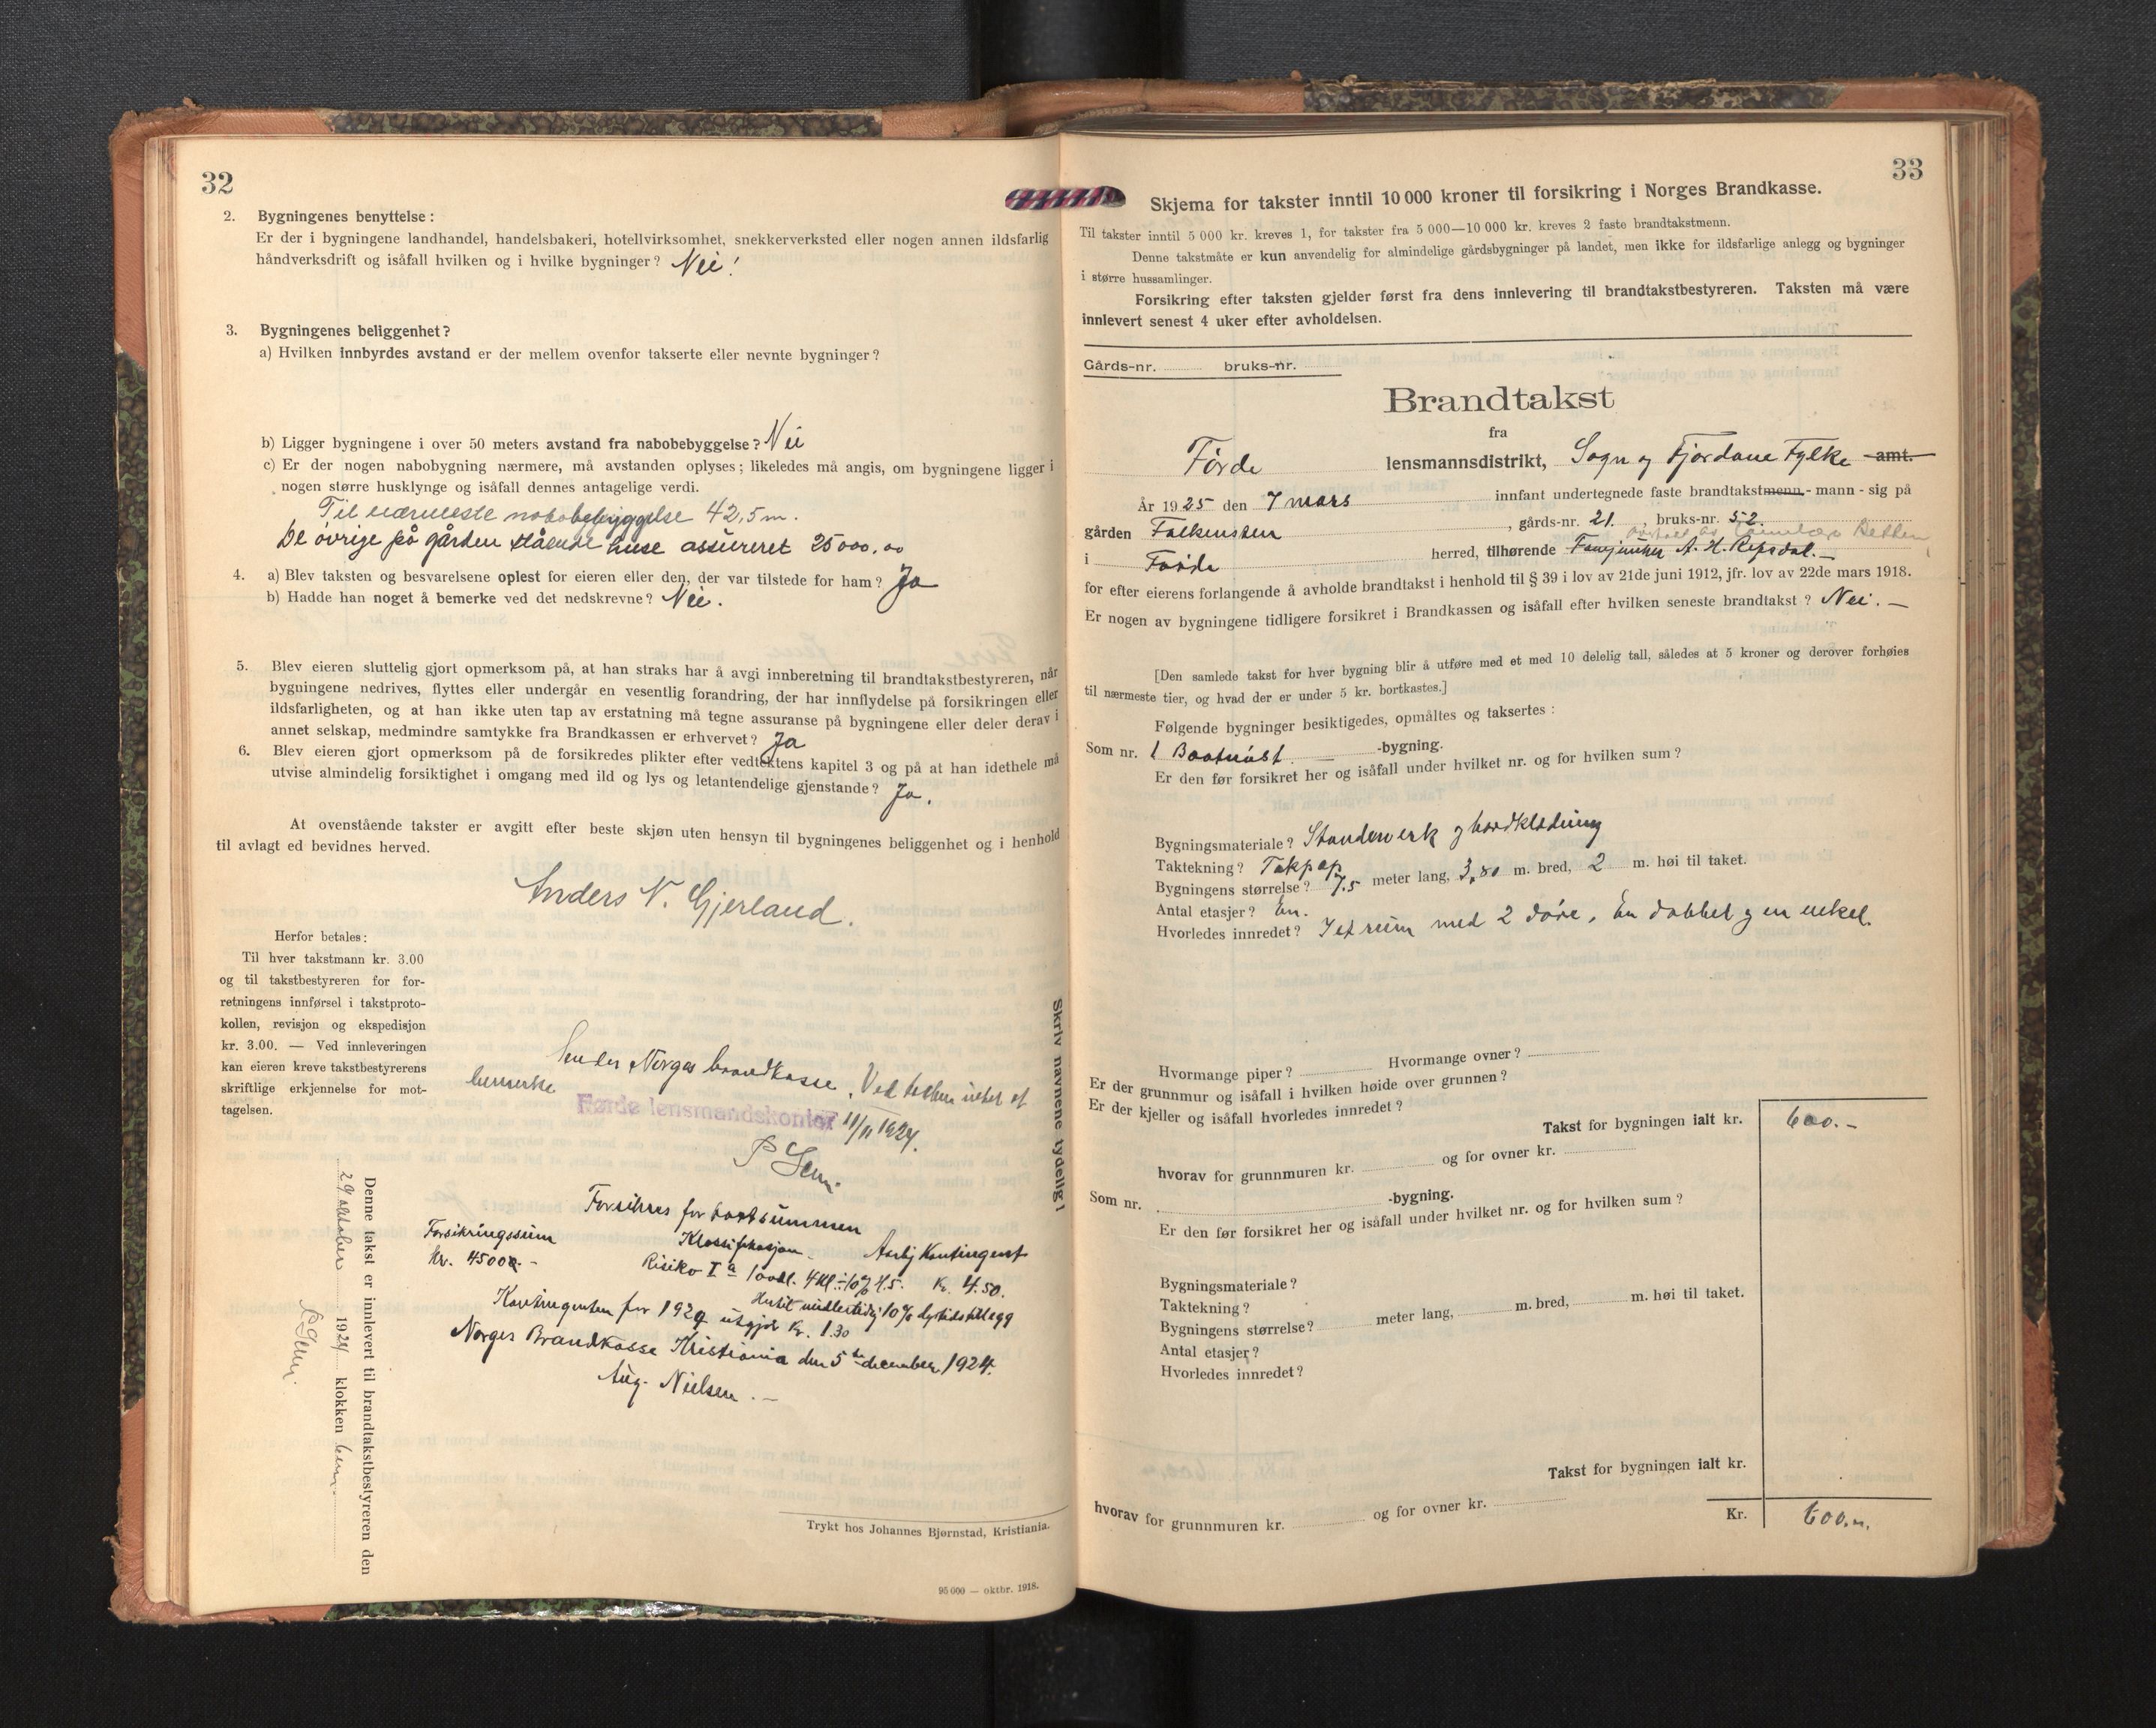 32
2. Bygningenes benyttelse:
Er der i bygningene landhandel, handelsbakeri, hotellvirksomhet, snekkerverksted eller nogen annen ildsfarlig
håndverksdrift og isåfall hvilken og i hvilke bygninger? Nei!
3. Bygningenes beliggenhet?
a) Hvilken innbyrdes avstand er der mellem ovenfor takserte eller nevnte bygninger?
b) Ligger bygningene i over 50 meters avstand fra nabobebyggelse? Nei
c) Er der nogen nabobygning nærmere, må avstanden oplyses; likeledes må angis, om bygningene ligger i
nogen større husklynge og isåfall dennes antagelige verdi.
Til nærmeste nabobebyggelse 42,5 m.
De øvrige på gården stående huse assureret 25000.00
4. a) Blev taksten og besvarelsene oplest for eieren eller den, der var tilstede for ham? Ja
b) Hadde han noget å bemerke ved det nedskrevne? Nei.
5. Blev eieren sluttelig gjort opmerksom på, at han straks har å avgi innberetning til brandtakstbestyreren, når
bygningene nedrives, flyttes eller undergår en vesentlig forandring, der har innflydelse på forsikringen eller
ildsfarligheten, og at han ikke uten tap av erstatning må tegne assuranse på bygningene eller deler derav i
annet selskap, medmindre samtykke fra Brandkassen er erhvervet? Ja
6. Blev eieren gjort opmerksom på de forsikredes plikter efter vedtektens kapitel 3 og på at han idethele må
utvise almindelig forsiktighet i omgang med ild og lys og letantendelige gjenstande? Ja.
At ovenstående takster er avgitt efter beste skjøn uten hensyn til bygningenes beliggenhet og i henhold
til avlagt ed bevidnes herved.
Anders N. Gjerland.
Herfor betales:
Til hver takstmann kr. 3.00
og til takstbestyreren for for-
retningens innførsel i takstproto-
kollen, revisjon og ekspedisjon
kr. 3.00. — Ved innleveringen
kan eieren kreve takstbestyrerens
skriftlige erkjennelse for mot-
tagelsen.
Sendes Norges brandkasse. Ved taksten intet at
bemerke
Førde lensmandskontor 11/11 1924.
Forsikres for takstsummen
Forsikringssum Klassifikasjon Aarlig Kontingent
Kr. 4500.- Risiko I a Kr. 4.50.
Hertil midlertidig 10% dyrtidstillegg
Kontingenten for 1924 utgjør Kr. 1.30
Norges Brandkasse Kristiania den 5te december 1924.
Aug. Nielsen.
Denne takst er innlevert til brandtakstbestyreren den
29 oktober 1924 klokken
Skriv navnene tydelig!
Trykt hos Johannes Bjørnstad, Kristiania.
95 000 — oktbr. 1918.
33
Skjema for takster inntil 10 000 kroner til forsikring i Norges Brandkasse.
Til takster inntil 5 000 kr. kreves 1, for takster fra 5 000—10 000 kr. kreves 2 faste brandtakstmenn.
Denne takstmåte er kun anvendelig for almindelige gårdsbygninger på landet, men ikke for ildsfarlige anlegg og bygninger
i større hussamlinger.
Forsikring efter taksten gjelder først fra dens innlevering til brandtakstbestyreren. Taksten må være
innlevert senest 4 uker efter avholdelsen.
Gårds-nr. bruks-nr.
Brandtakst
fra
Førde lensmannsdistrikt, Sogn og Fjordane Fylke amt.
År 1925 den 7 mars innfant undertegnede faste brandtakstmenn - mann - sig på
gården Falkensten, gårds-nr. 21, bruks-nr. 52.
i Førde herred, tilhørende Fanejunker A. H. Repsdal.
for efter eierens forlangende å avholde brandtakst i henhold til § 39 i lov av 21de juni 1912, jfr. lov av 22de mars 1918.
Er nogen av bygningene tidligere forsikret i Brandkassen og isåfall efter hvilken seneste brandtakst? Nei.
[Den samlede takst for hver bygning blir å utføre med et med 10 delelig tall, således at 5 kroner og derover forhøies
til nærmeste tier, og hvad der er under 5 kr. bortkastes.]
Følgende bygninger besiktigedes, opmåltes og taksertes:
Som nr. 1 Baatnøst -bygning.
Er den før forsikret her og isåfall under hvilket nr. og for hvilken sum?
Bygningsmateriale? Standerverk og bordklædning
Taktekning? Takpap
Bygningens størrelse? 7.5 meter lang, 3,80 m. bred, 2 m. høi til taket.
Antal etasjer? En.
Hvorledes innredet? I et rum med 2 døre, En dobbel og en enkel.
Hvormange piper? Hvormange ovner?
Er der grunnmur og isåfall i hvilken høide over grunnen?
Er der kjeller og isåfall hvorledes innredet?
Takst for bygningen ialt kr. 600.-
hvorav for grunnmuren kr. og for ovner kr.
Som nr. -bygning.
Er den før forsikret her og isåfall under hvilket nr. og for hvilken sum?
Bygningsmateriale?
Taktekning?
Bygningens størrelse? meter lang, m. bred, m. høi til taket.
Antal etasjer?
Hvorledes innredet?
Takst for bygningen ialt kr.
hvorav for grunnmuren kr. og for ovner kr.
Kr. 600.